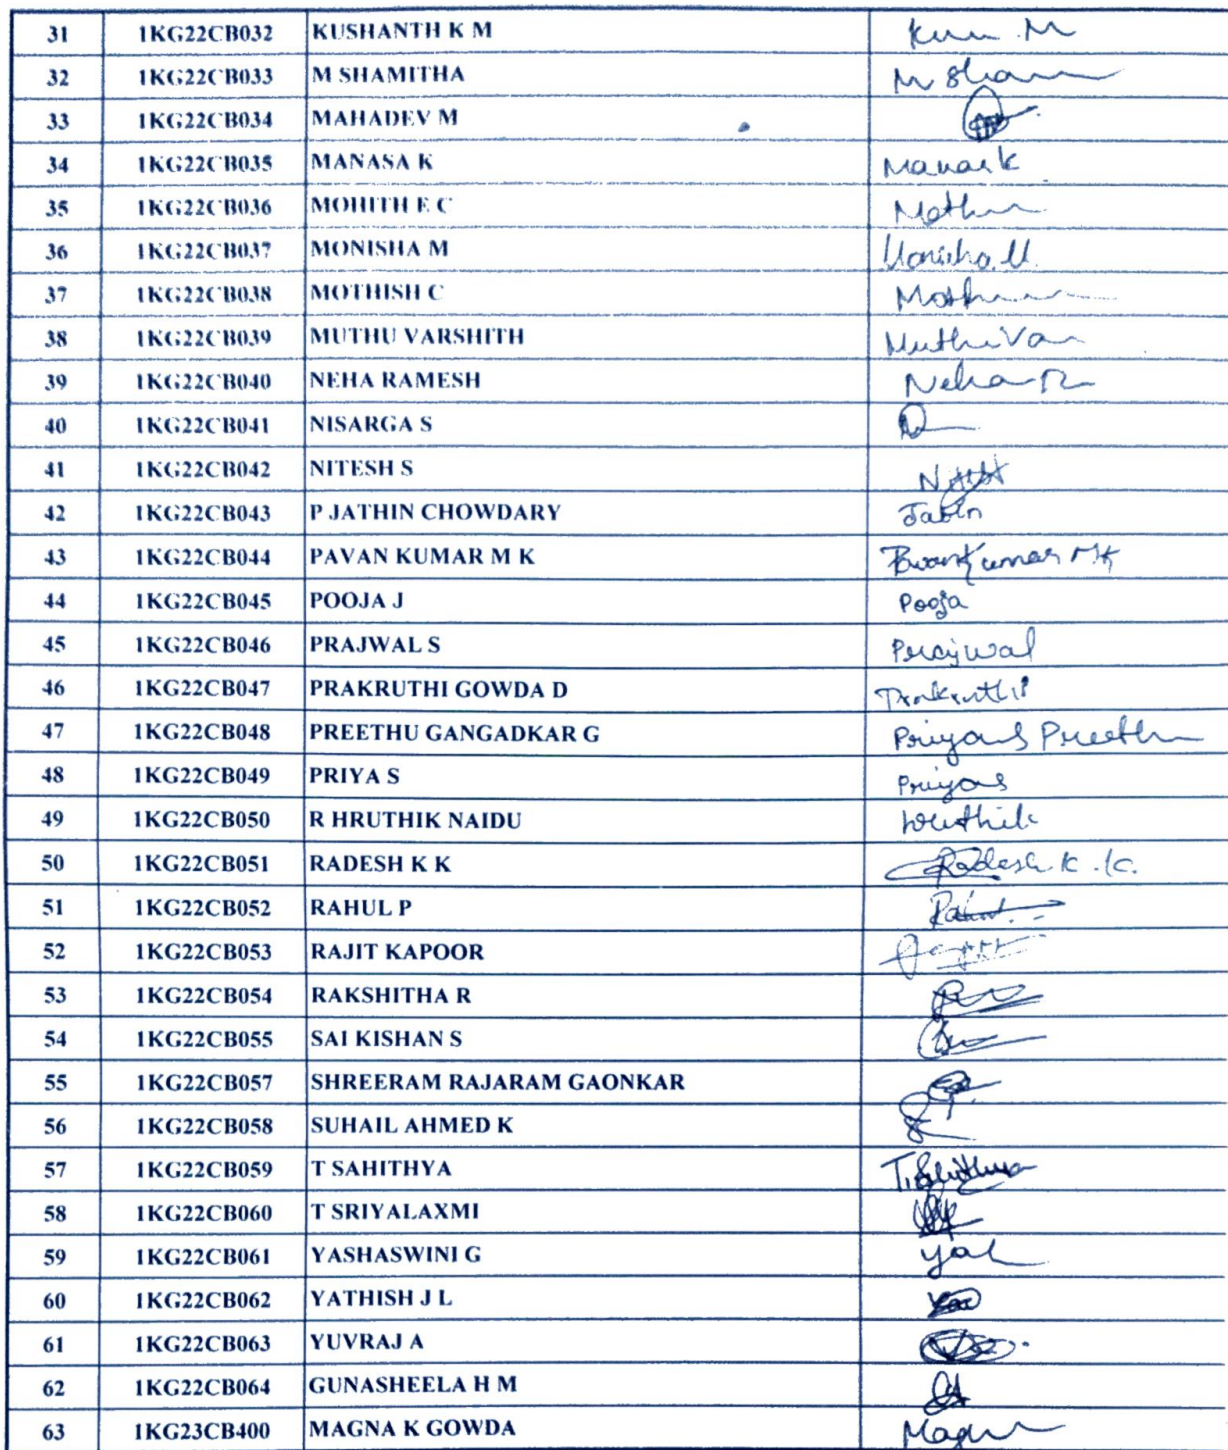 31 1KG22CB032 KUSHANTH K M
32 1KG22CB033 M SHAMITHA M Sham
33 1KG22CB034 MAHADEV M
34 1KG22CB035 MANASA K
35 1KG22CB036 MOHITH E C
36 1KG22CB037 MONISHA M Monisha.M
37 1KG22CB038 MOTHISH C
38 1KG22CB039 MUTHU VARSHITH
39 1KG22CB040 NEHA RAMESH Neha R
40 1KG22CB041 NISARGA S
41 1KG22CB042 NITESH S
42 1KG22CB043 P JATHIN CHOWDARY
43 1KG22CB044 PAVAN KUMAR M K PavanKumar MK
44 1KG22CB045 POOJA J Pooja
45 1KG22CB046 PRAJWAL S Prajwal
46 1KG22CB047 PRAKRUTHI GOWDA D Prakruthi
47 1KG22CB048 PREETHU GANGADKAR G PriyaS Preeth
48 1KG22CB049 PRIYA S PriyaS
49 1KG22CB050 R HRUTHIK NAIDU Hruthik
50 1KG22CB051 RADESH K K Radesh K.K.
51 1KG22CB052 RAHUL P
52 1KG22CB053 RAJIT KAPOOR
53 1KG22CB054 RAKSHITHA R
54 1KG22CB055 SAI KISHAN S
55 1KG22CB057 SHREERAM RAJARAM GAONKAR
56 1KG22CB058 SUHAIL AHMED K
57 1KG22CB059 T SAHITHYA T.Sahithya
58 1KG22CB060 T SRIYALAXMI
59 1KG22CB061 YASHASWINI G
60 1KG22CB062 YATHISH J L
61 1KG22CB063 YUVRAJ A
62 1KG22CB064 GUNASHEELA H M
63 1KG23CB400 MAGNA K GOWDA